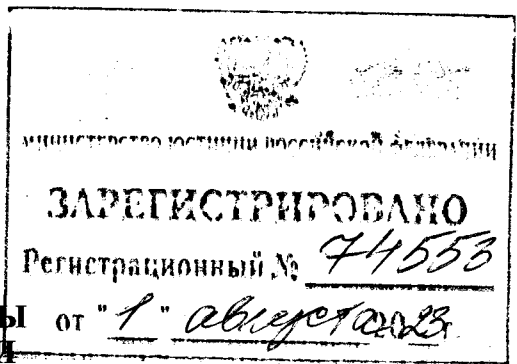 МИНИСТЕРСТВО ЮСТИЦИИ РОССИЙСКОЙ ФЕДЕРАЦИИ
ЗАРЕГИСТРИРОВАНО
Регистрационный № 74553
Ы от "1" августа 2023г.